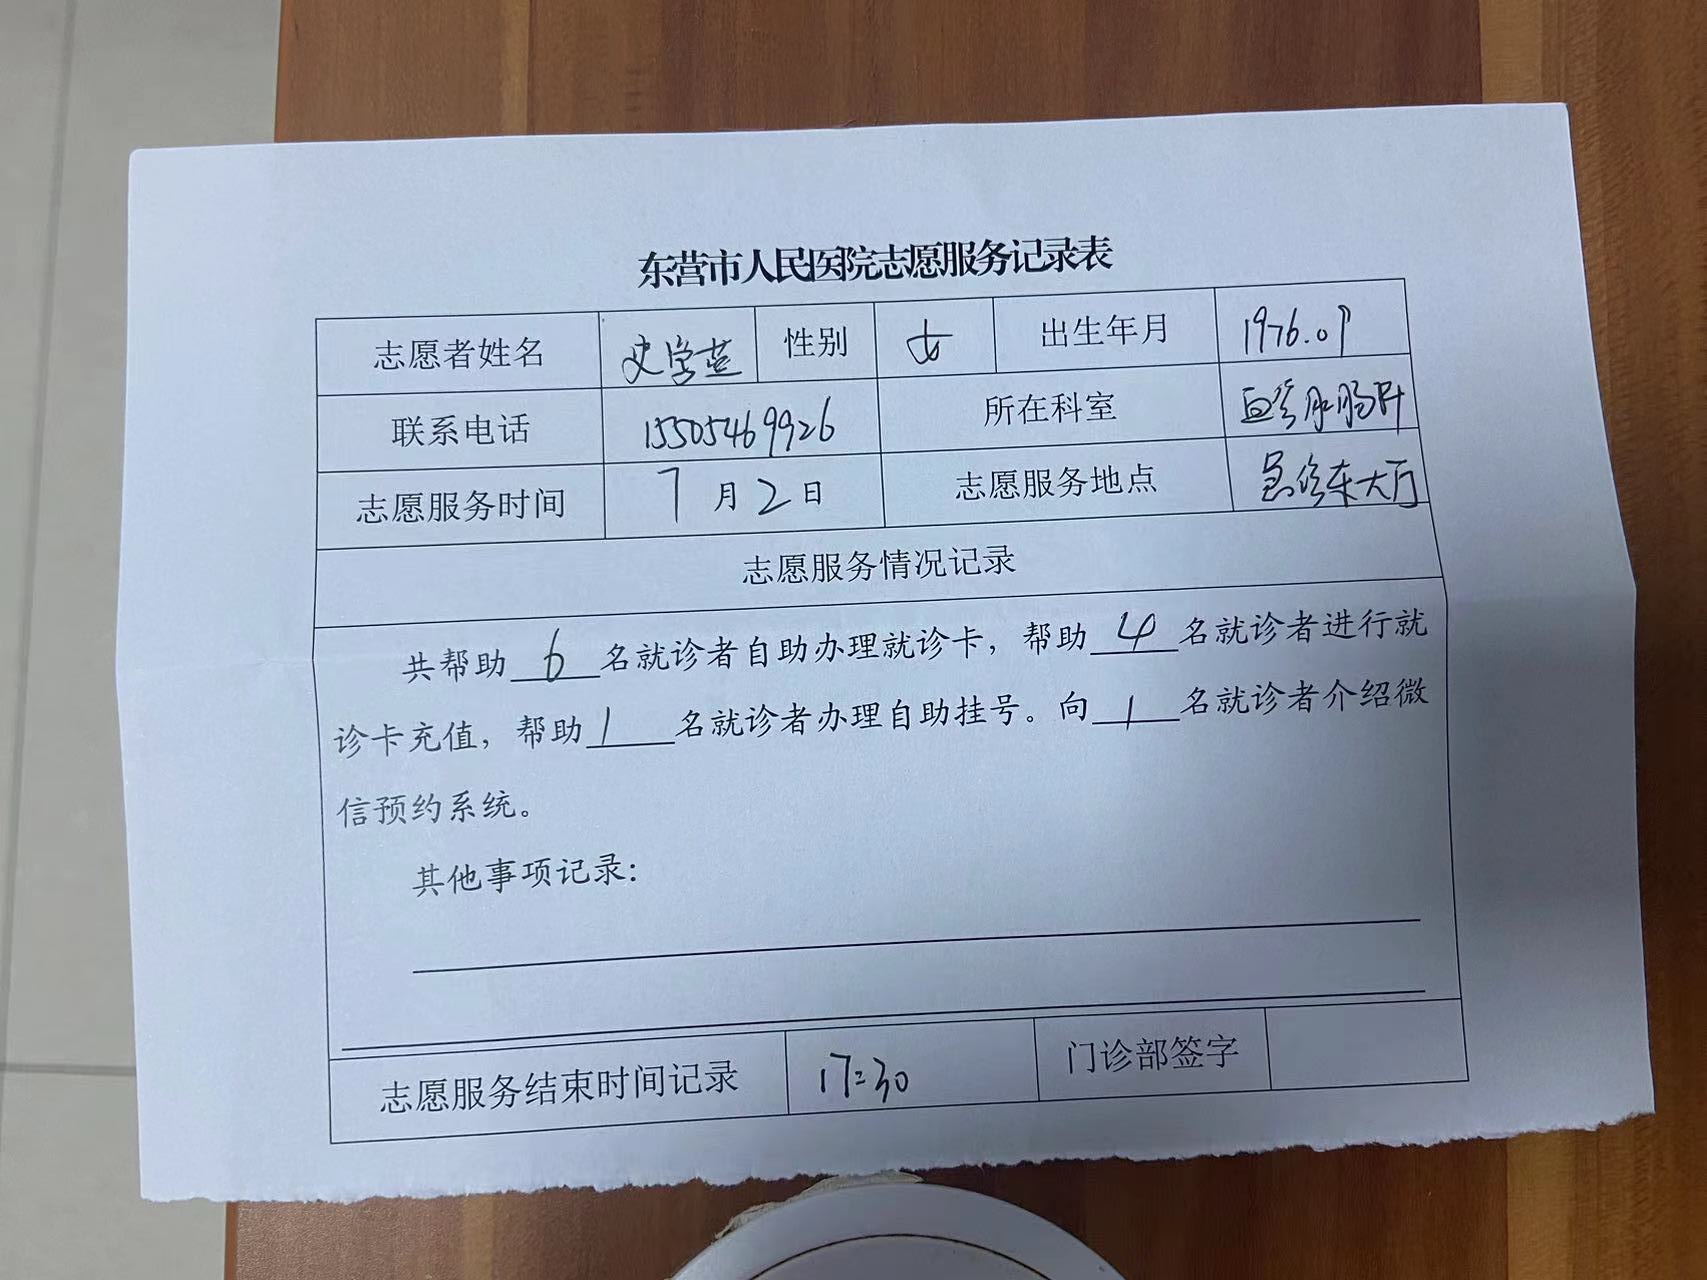 东营市人民医院志愿服务记录表
志愿者姓名 史学英 性别 女 出生年月 1976.09
联系电话 15505469926 所在科室 血管肛肠科
志愿服务时间 7月2日 志愿服务地点 急诊东大厅
志愿服务情况记录
共帮助 6 名就诊者自助办理就诊卡，帮助 4 名就诊者进行就
诊卡充值，帮助 1 名就诊者办理自助挂号。向 1 名就诊者介绍微
信预约系统。
其他事项记录：
志愿服务结束时间记录 17:30 门诊部签字